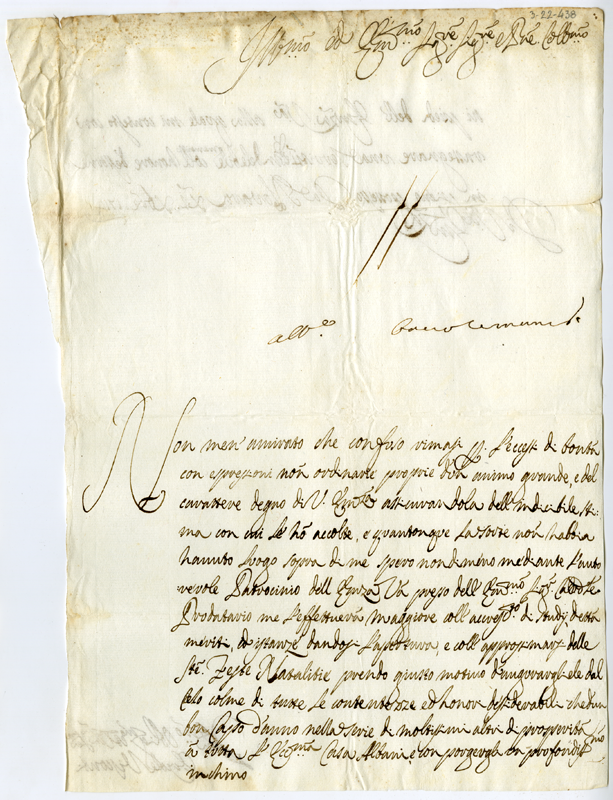 3-22-438
Ill.mo ed Em.mo Sig.re Sig.re e Pne Coll.mo
Non men' amirato che confuso rimasi p. l'eccessi di bontà
con espressioni non ordinarie proprie d'un animo grande, e del
carattere degno di V. Em.za assicurandola dell'indicibile sti:
ma con cui le hò accolte, e quantonque la sorte non habbia
hauuto luogo sopra di me spero nondimeno mediante l'auto
revole Patrocinio dell' Emza Va. preso dell' Em.mo Sig.
Prodatario me l'effettuerà maggiore coll' di studij
meriti, ed istanze dandosi l'apertura, e coll' approssimarsi delle
S.te Feste Natalitie prendo giusto motivo d'augurargliele dal
Cielo colme di tutte le contentezze ed honori desiderabili che d'un
bon Capo d'anno nella serie di moltissimi altri di prosperità
à tutta l'Ecc.ma Casa Albani, e con porgergli un profondiss.mo
inchino